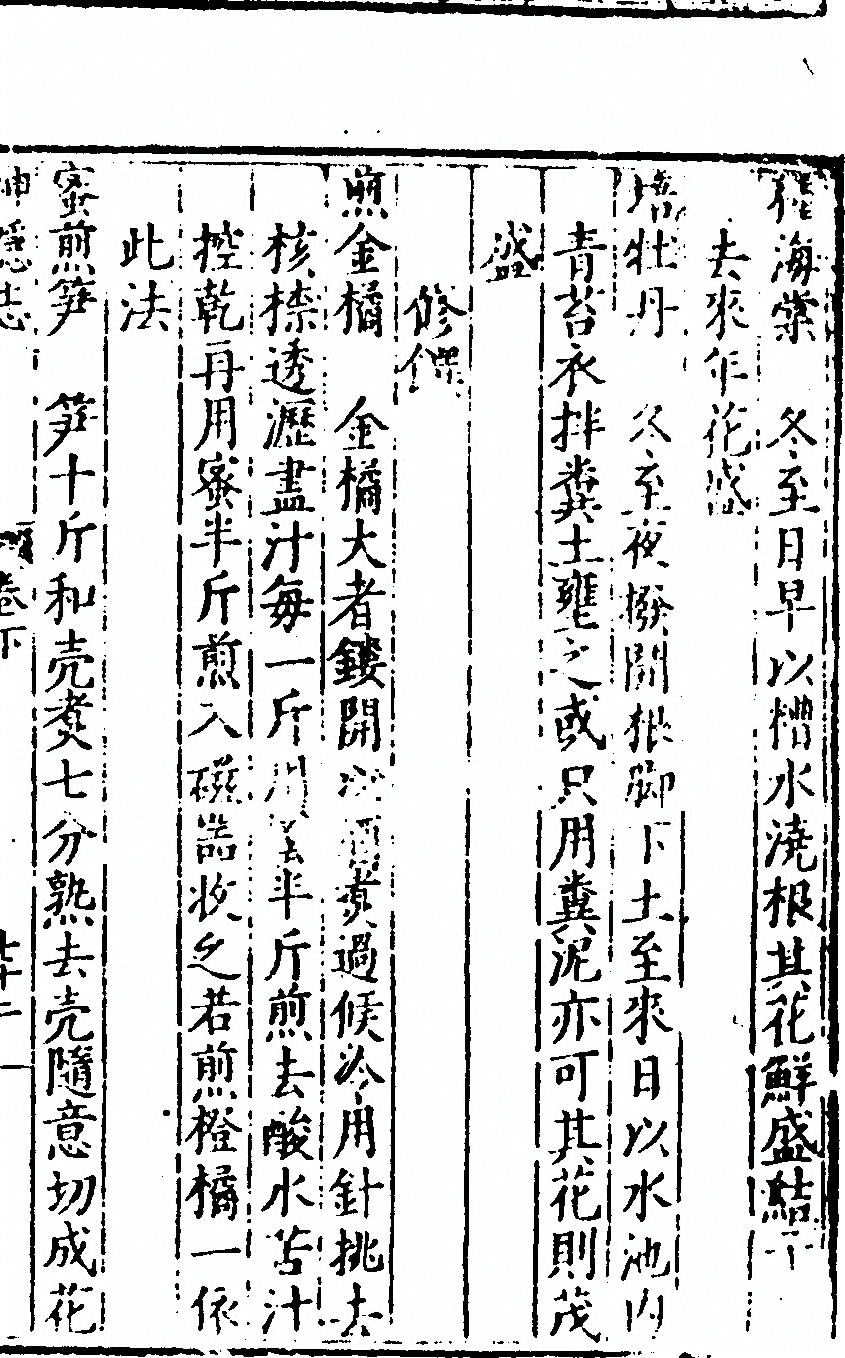 海棠　冬至日早以糟水澆根其花鮮盛結子
去來年花盛
培牡丹　冬至夜撥開根脚下土至來日以水池內
青苔衣拌糞土壅之或只用糞泥亦可其花則茂
盛
修饌
煎金橘　金橘大者鏤開煑過候冷用針挑去
核捺透瀝盡汁每一斤用半斤煎去酸水苦汁
控乾再用蜜半斤煎入磁器收之若煎橙橘一依
此法
蜜煎笋　笋十斤和壳煑七分熟去壳隨意切成花
神隱志　卷下　七十二